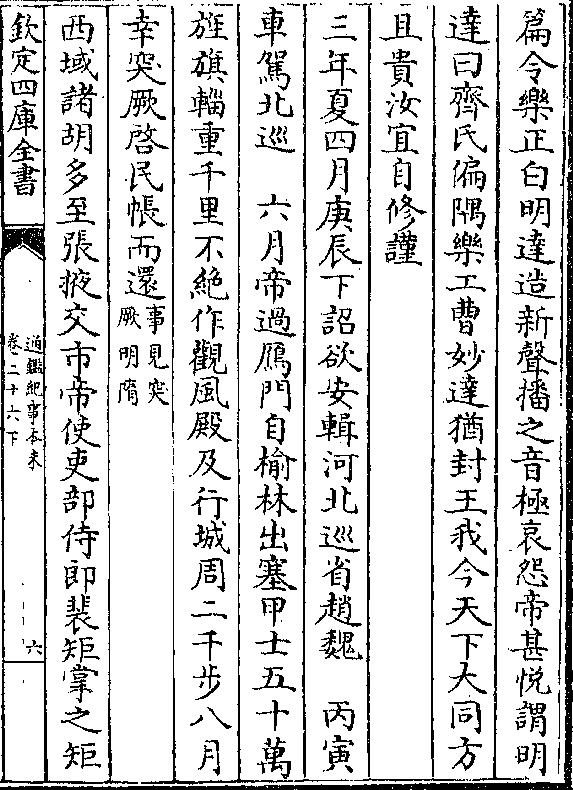 篇令樂正白明達造新聲播之音極哀怨帝甚悦謂明
達曰齊氏偏隅樂工曹妙達猶封王我今天下大同方
且貴汝宜自修謹
三年夏四月庚辰下詔欲安輯河北巡省趙魏　丙寅
車駕北巡　六月帝過鴈門自榆林出塞甲士五十萬
旌旗輜重千里不絶作觀風殿及行城周二千步八月
幸突厥啓民帳而還事見突厥明隋
西域諸胡多至張掖交市帝使吏部侍郎裴矩掌之矩
欽定四庫全書
通鑑紀事本末
卷二十六下
六